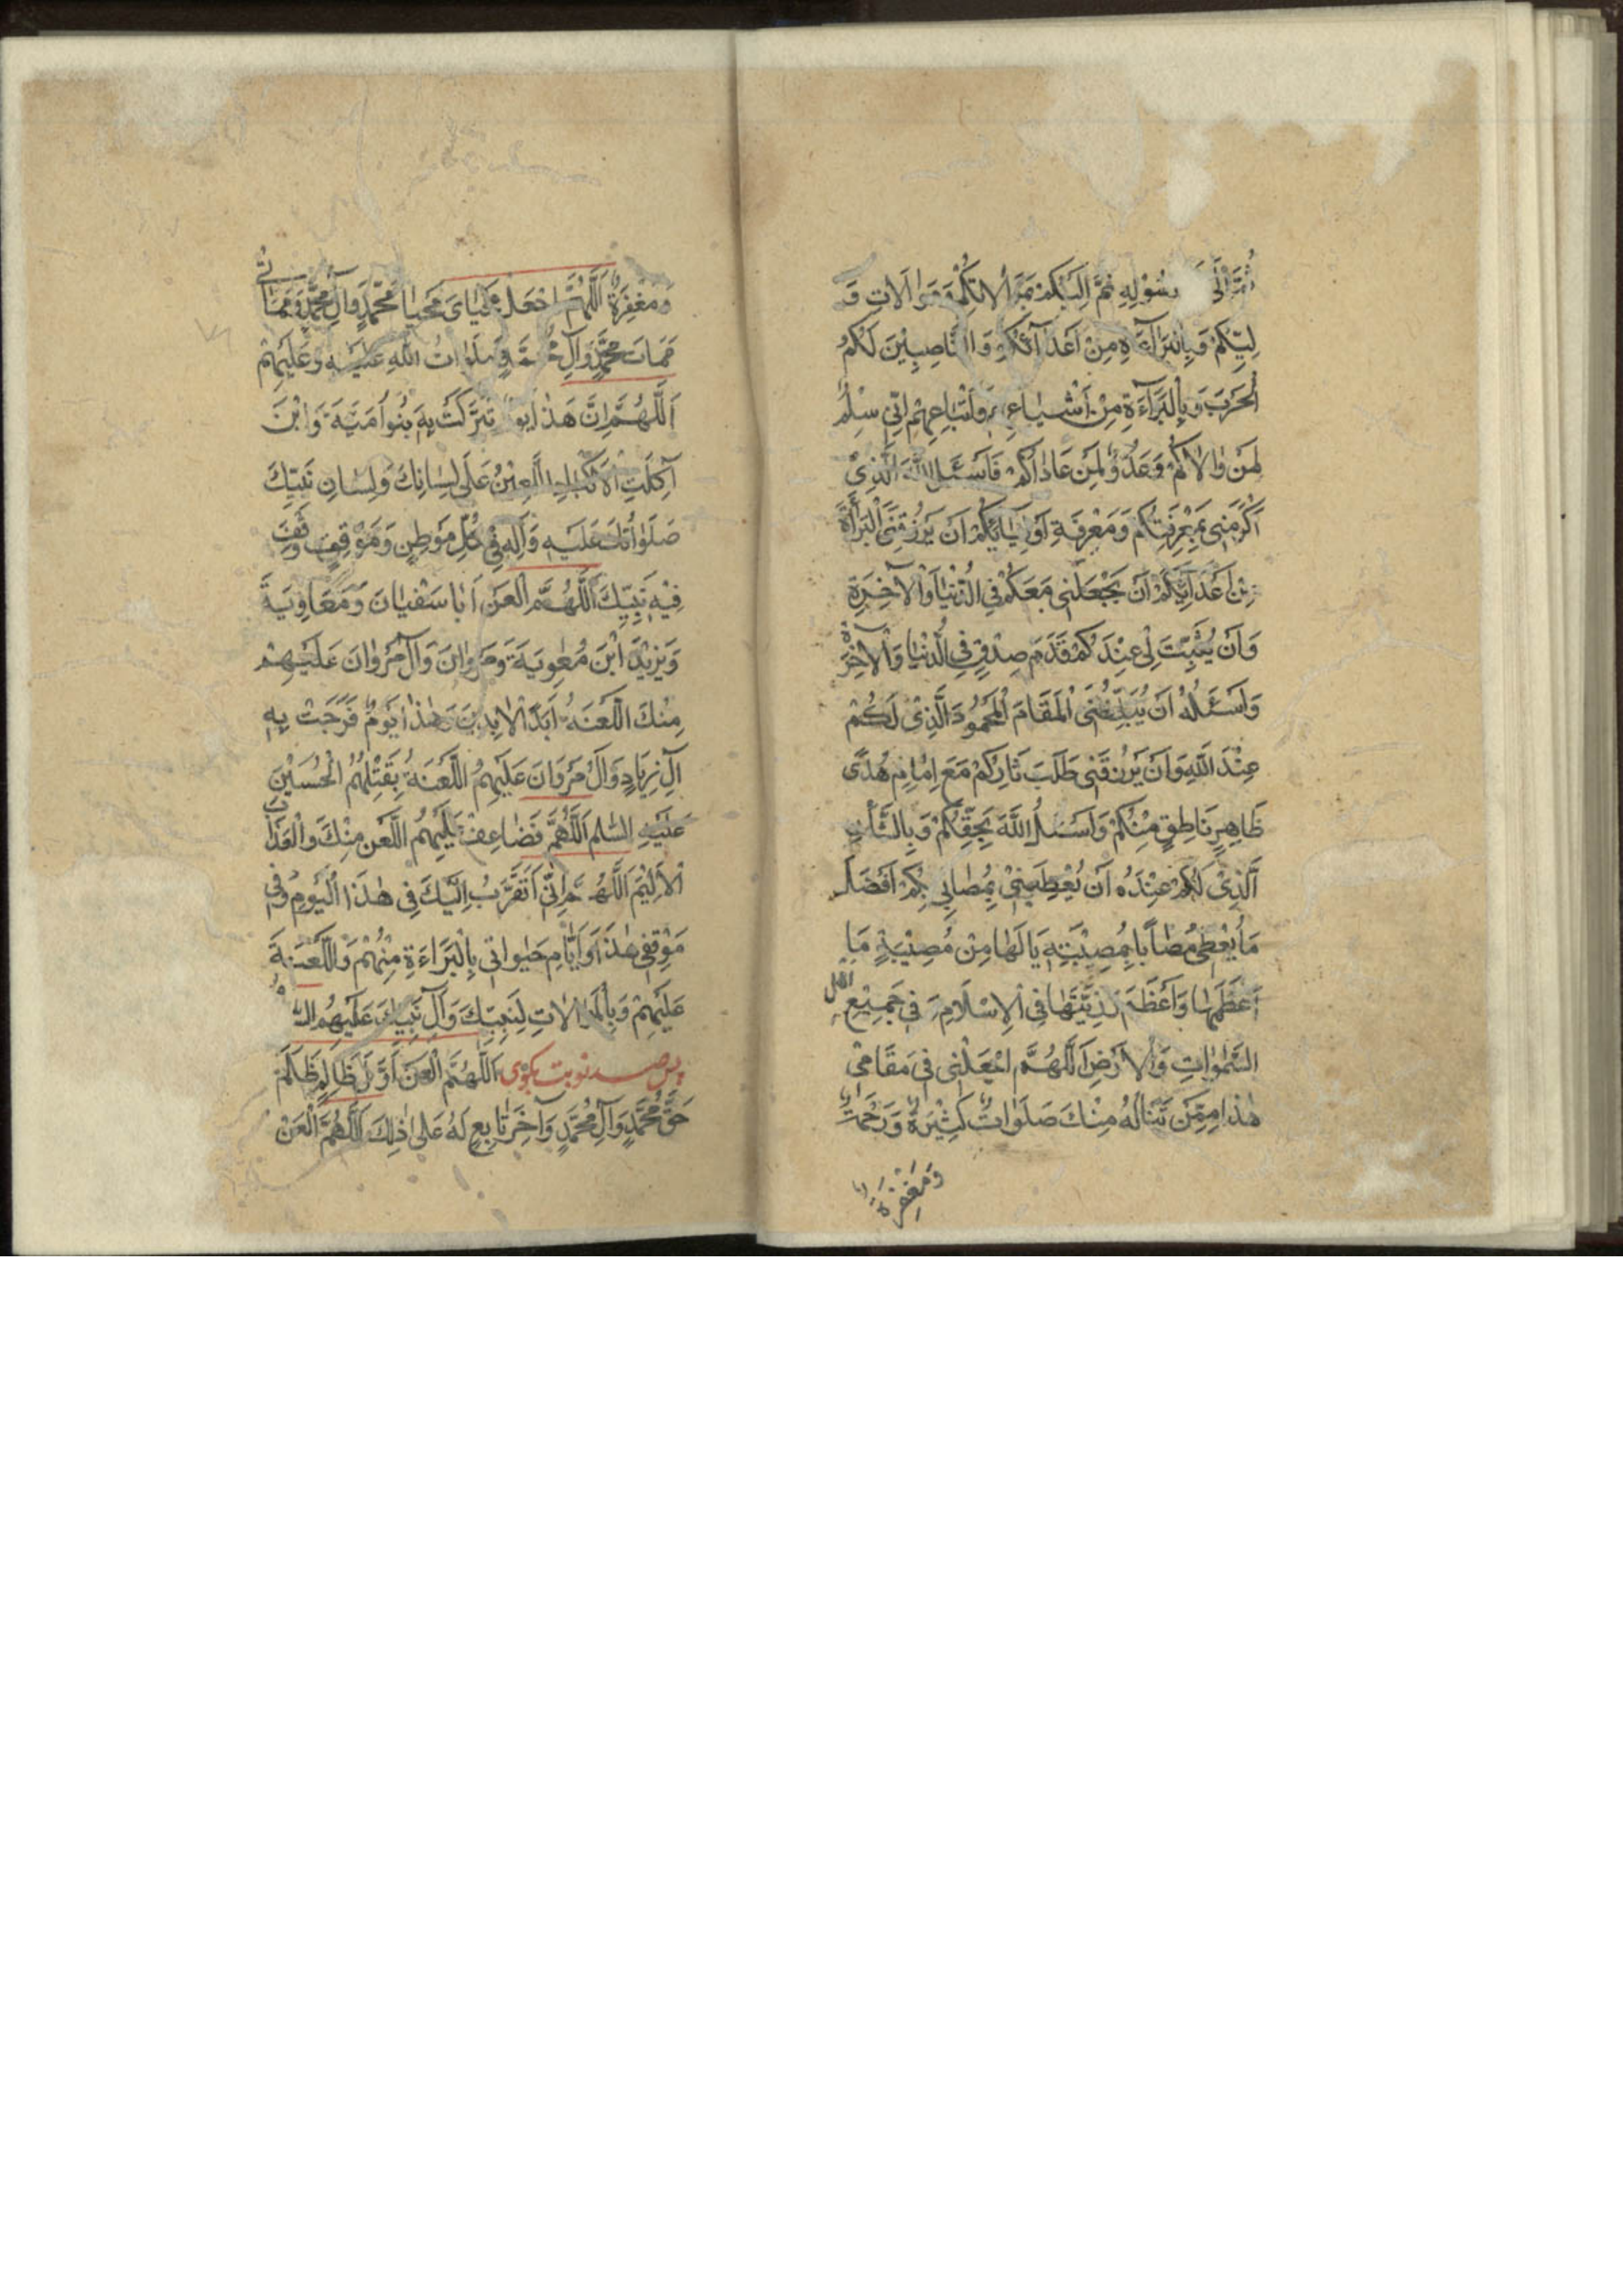 ثُمَّ اِلٰى رَسُوْلِهِ ثُمَّ اِلَيْكُمْ بِمُوَالَاتِكُمْ وَمَوَالَاتِ وَ
لِيِّكُمْ وَبِالْبَرَآءَةِ مِنْ اَعْدَآئِكُمْ وَالنَّاصِبِيْنَ لَكُمُ
الْحَرْبَ وَبِالْبَرَآءَةِ مِنْ اَشْيَاعِهِمْ وَاَتْبَاعِهِمْ اِنِّي سِلْمٌ
لِمَنْ وَالَاكُمْ وَعَدُوٌّ لِمَنْ عَادَاكُمْ فَاَسْئَلُ اللّٰهَ الَّذِيْ
اَكْرَمَنِي بِمَعْرِفَتِكُمْ وَمَعْرِفَةِ اَوْلِيَائِكُمْ اَنْ يَرْزُقَنِيَ الْبَرَاءَةَ
مِنْ اَعْدَائِكُمْ اَنْ يَجْعَلَنِي مَعَكُمْ فِي الدُّنْيَا وَالْآخِرَةِ
وَاَنْ يُثَبِّتَ لِيْ عِنْدَكُمْ قَدَمَ صِدْقٍ فِي الدُّنْيَا وَالْآخِرَةِ
وَاَسْئَلُهُ اَنْ يُبَلِّغَنِيَ الْمَقَامَ الْمَحْمُودَ الَّذِيْ لَكُمْ
عِنْدَ اللّٰهِ وَاَنْ يَرْزُقَنِي طَلَبَ ثَارِكُمْ مَعَ اِمَامٍ هُدًى
ظَاهِرٍ نَاطِقٍ مِنْكُمْ وَاَسْئَلُ اللّٰهَ بِحَقِّكُمْ وَبِالشَّأْنِ
الَّذِيْ لَكُمْ عِنْدَهُ اَنْ يُعْطِيَنِيْ بِمُصَابِي بِكُمْ اَفْضَلَ
مَا يُعْطِي مُصَابًا بِمُصِيْبَتِهِ يَا لَهَا مِنْ مُصِيْبَةٍ مَا
اَعْظَمَهَا وَاَعْظَمَ رَزِيَّتَهَا فِي الْاِسْلَامِ وَفِي جَمِيْعِ اهل
السَّمٰوَاتِ وَالْاَرْضِ اَللّٰهُمَّ اجْعَلْنِي فِي مَقَامِي
هٰذَا مِمَّنْ تَنَالُهُ مِنْكَ صَلَوَاتٌ كَثِيْرَةٌ وَرَحْمَةٌ
وَمَغْفِرَةٌ
وَمَغْفِرَةٌ اَللّٰهُمَّ اجْعَلْ مَحْيَايَ مَحْيَا مُحَمَّدٍ وَآلِ مُحَمَّدٍ وَمَمَاتِي
مَمَاتَ مُحَمَّدٍ وَآلِ مُحَمَّدٍ صَلَوَاتُ اللّٰهِ عَلَيْهِ وَعَلَيْهِمْ
اَللّٰهُمَّ اِنَّ هٰذَا يوم تَبَرَّكَتْ بِهِ بَنُو اُمَيَّةَ وَابْنَ
آكِلَتِ الْاَكْبَادِ اللَّعِيْنُ عَلَى لِسَانِكَ وَلِسَانِ نَبِيِّكَ
صَلَوَاتُكَ عَلَيْهِ وَآلِهِ فِي كُلِّ مَوْطِنٍ وَمَوْقِفٍ وَقَفَ
فِيْهِ نَبِيُّكَ اَللّٰهُمَّ الْعَنْ اَبَا سَفْيَانَ وَمَعَاوِيَةَ
وَيَزِيْدَ ابْنَ مُعٰوِيَةَ وَمَرْوَانَ وَآلَ مَرْوَانَ عَلَيْهِمْ
مِنْكَ اللَّعْنَةُ اَبَدَ الْآبِدِيْنَ وَهٰذَا يَوْمٌ فَرَحَتْ بِهِ
آلُ زِيَادٍ وَآلُ مَرْوَانَ عَلَيْهِمُ اللَّعْنَةُ بِقَتْلِهِمُ الْحُسَيْنَ
عَلَيْهِ السَّلٰم اَللّٰهُمَّ فَضَاعِفْ عَلَيْهِمُ اللَّعْنَ مِنْكَ وَالْعَذَابَ
الْاَلِيْمَ اَللّٰهُمَّ اِنِّي اَتَقَرَّبُ اِلَيْكَ فِي هٰذَا الْيَوْمِ وَفِي
مَوْقِفِي هٰذَا وَاَيَّامِ حَيٰوتِي بِالْبَرَاءَةِ مِنْهُمْ وَاللَّعْنَةَ
عَلَيْهِمْ وَبِالْمُوَالَاتِ لِنَبِيِّكَ وَآلِ نَبِيِّكَ عَلَيْهِمُ السلام
پس صد نوبت بگوى اَللّٰهُمَّ الْعَنْ اَوَّلَ ظَالِمٍ ظَلَمَ
حَقَّ مُحَمَّدٍ وَآلِ مُحَمَّدٍ وَآخِرَ تَابِعٍ لَهُ عَلَى ذٰلِكَ اَللّٰهُمَّ الْعَنْ